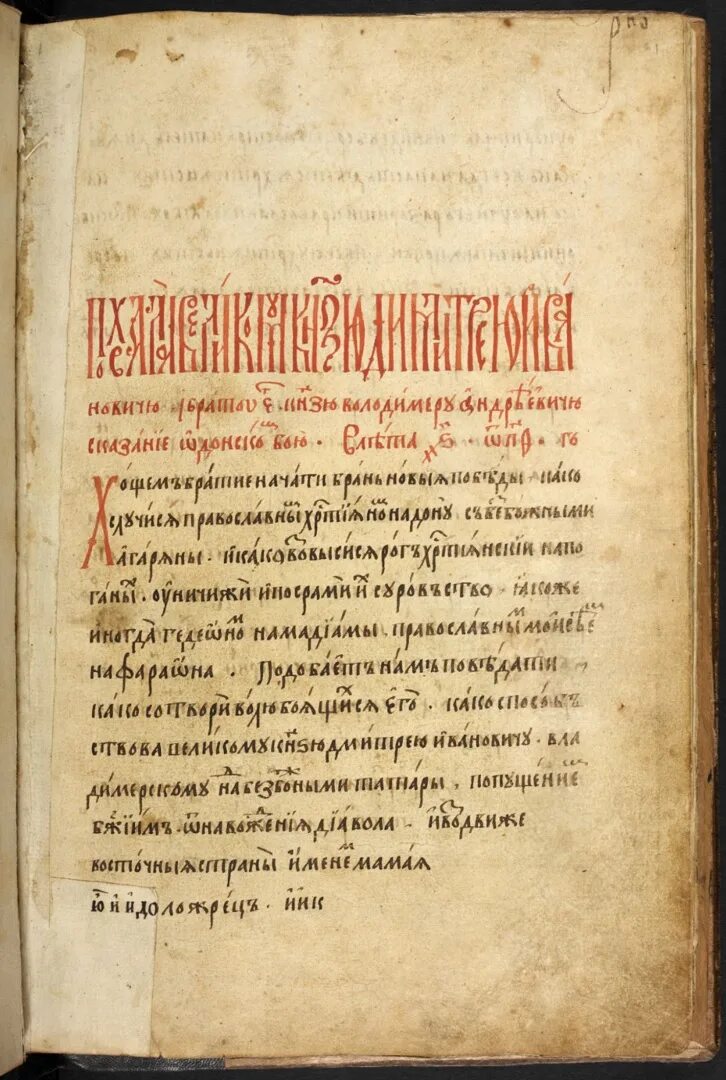 рп҃з
Похвала великомꙋ кн҃зю димитрею ива
новичю ібратоу е҆г кн҃зю володимерꙋ ѡндрѣевичю
сказание ѡдонско бою · В лѣта · ҂ѕ҃ · ѿп҃ · го
Хощемъ братие начати брань новыя побѣды · како
слꙋчися православным хрⷭ҇тияном на донꙋ съ безбожными
агаряны · и како возвысися рогъ хрⷭ҇тиянскии на по
ганых · оуничижи и посрами их сꙋровъство · якоже
иногда гедеѡном на мадіамы · православным моисѣем
на фараѡна · Подобаетъ намъ повѣдати
како сотвори волю боящихся его · како способъ
ствова великомꙋ кнѕю дмитрею ивановичꙋ · вла
димерскомꙋ над безбожными татары · попꙋщением
бж҃іим · ѿ навождения діавола · и воздвиже
восточныя страны именем мамая
и идоложрец ·